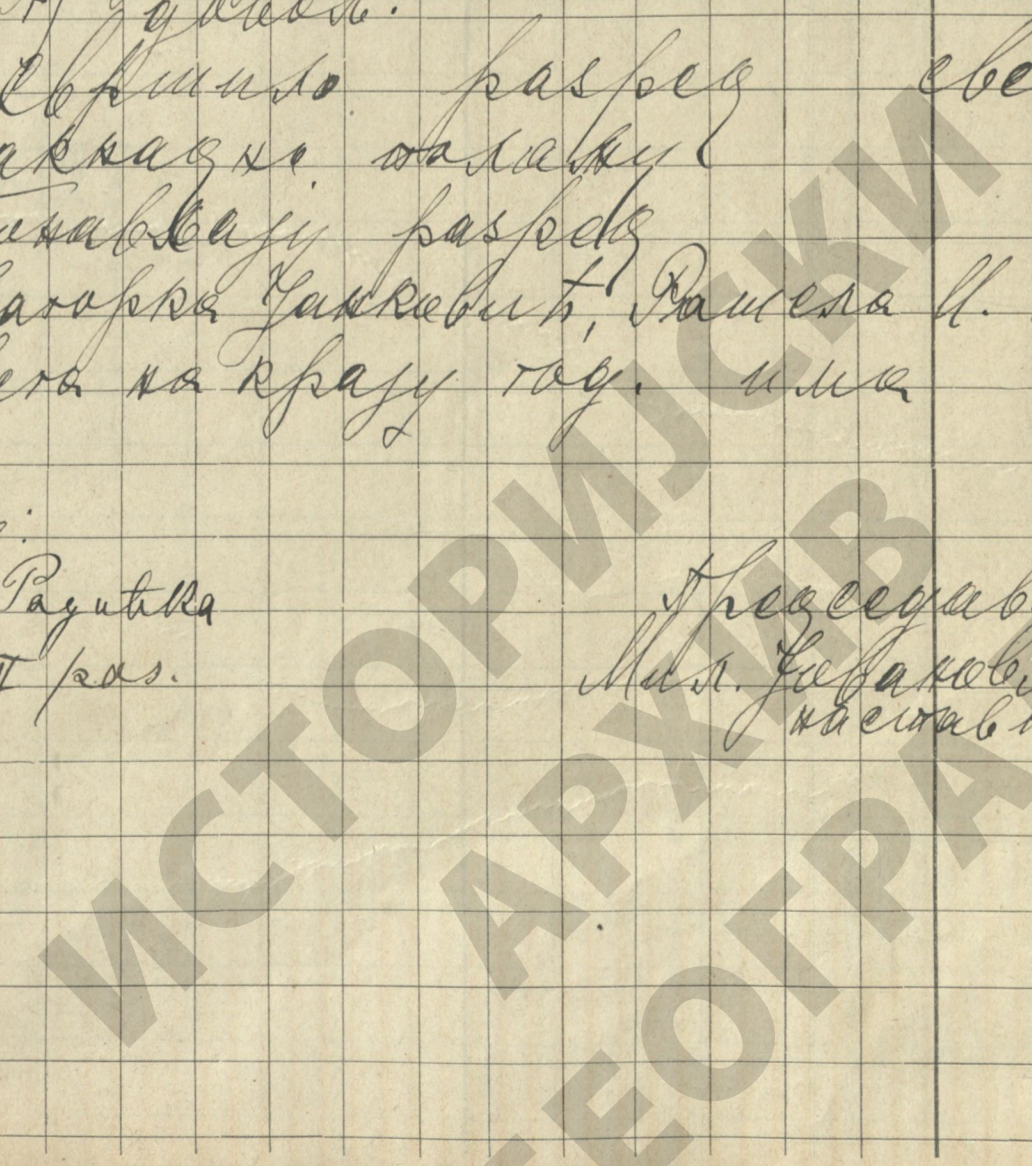 свршило разред све
акнадно полажу
онављају разред
агорка Јанковић, Рашела И.
ега на крају год. има
Радићка
II раз.
Председав
Мил. Јованови
настав
ИСТОРИЈСКИ
АРХИВ
БЕОГРА